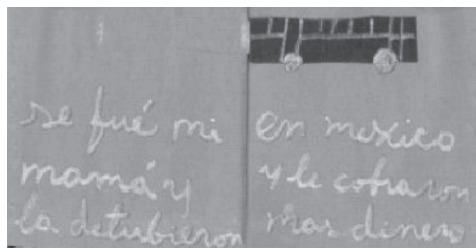 se fué mi
mamá y
la detubieron
en mexico
y le cobraron
mas dinero